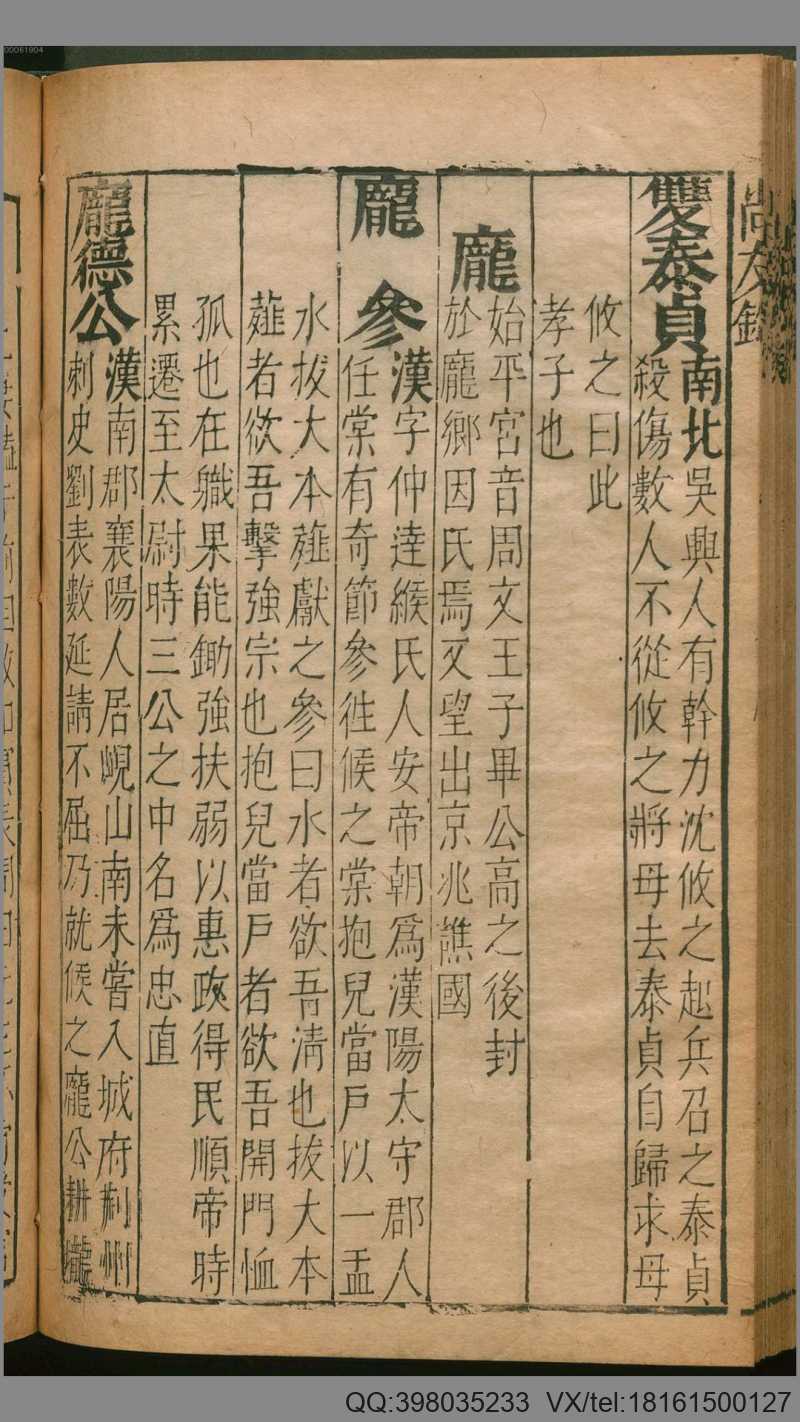 尚友錄
雙泰貞
南北吳興人有幹力沈攸之起兵召之泰貞
殺傷數人不從攸之將母去泰貞自歸求母
攸之曰此
孝子也
龐
始平宮音周文王子畢公高之後封
於龐鄉因氏焉又望出京兆譙國
龐參
漢字仲達緱氏人安帝朝爲漢陽太守郡人
任棠有奇節參徃候之棠抱兒當戶以一盂
水拔大本薤獻之參曰水者欲吾淸也拔大本
薤者欲吾擊強宗也抱兒當戶者欲吾開門恤
孤也在職果能鋤強扶弱以惠政得民順帝時
累遷至太尉時三公之中名爲忠直
龐德公
漢南郡襄陽人居峴山南未嘗入城府荆州
刺史劉表數延請不屈乃就候之龐公耕隴
00061904
QQ:398035233 VX/tel:18161500127